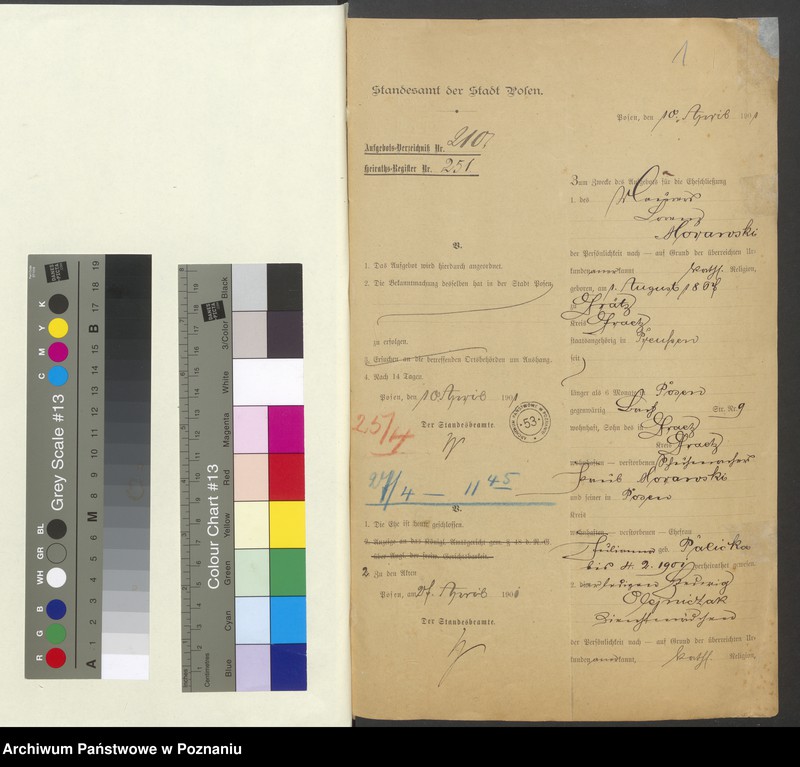 1
Standesamt der Stadt Posen.
Posen, den 10. April 1901
Aufgebots-Verzeichniß Nr. 210.
Heiraths-Register Nr. 251.
Zum Zwecke des Aufgebots für die Eheschließung
1. des Maurers
Lorenz
Morawski
der Persönlichkeit nach — auf Grund der überreichten Ur-
kunden anerkannt kath. Religion,
geboren am 1. August 1867
in Grätz
Kreis Graetz
staatsangehörig in Preußen
seit
länger als 6 Monate Posen
gegenwärtig
Str. Nr. 9
wohnhaft, Sohn des in Graetz
Kreis Graetz
wohnhaften — verstorbenen
Morawski
und seiner in Posen
Kreis
wohnhaften — verstorbenen — Ehefrau
geb. Palicka
bis 4. 2. 1901 verheirathet gewesen
2. der ledigen Hedwig
Olejniczak
Dienstmädchen
der Persönlichkeit nach — auf Grund der überreichten Ur-
kunden anerkannt, kath. Religion,
V.
1. Das Aufgebot wird hierdurch angeordnet.
2. Die Bekanntmachung desselben hat in der Stadt Posen,
zu erfolgen.
3. Ersuchen an die betreffenden Ortsbehörden um Aushang.
4. Nach 14 Tagen.
Posen, den 10 April 1901
Der Standesbeamte.
25/4
27/4 — 11 45
V.
1. Die Ehe ist heute geschlossen.
2. Anzeige an das Königl. Amtsgericht gem. § 48 d. R.-G.
über Angl. der freiw. Gerichtsbarkeit.
2 Zu den Akten
Posen, am 27. April 1901
Der Standesbeamte.
ARCHIWUM PAŃSTWOWE W POZNANIU
53
Grey Scale #13
C M Y K
R G B WH GR BL
A 1 2 3 4 5 6 M 8 9 10 11 12 13 14 15 B 17 18 19
DANES PICTA
Colour Chart #13
Blue Cyan Green Yellow Red Magenta White 3/Color Black
Inches
Centimetres
Archiwum Państwowe w Poznaniu